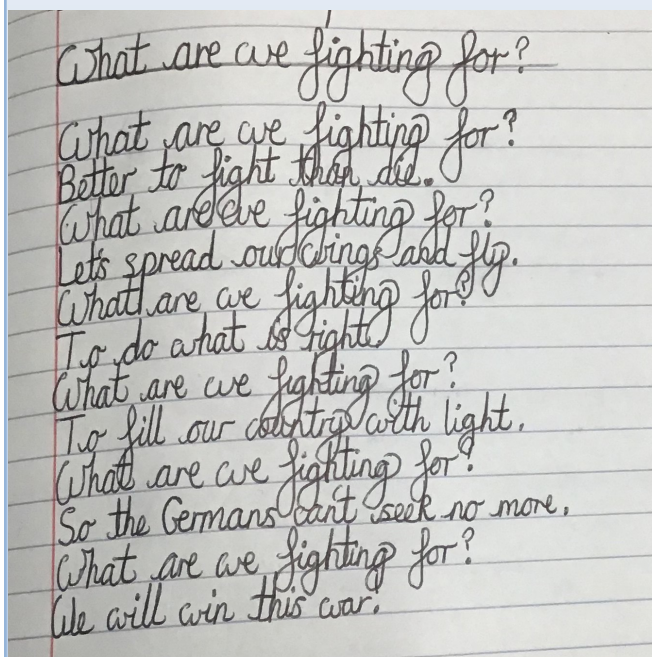 What are we fighting for?
What are we fighting for?
Better to fight than die.
What are we fighting for?
Let's spread our wings and fly.
What are we fighting for?
To do what is right.
What are we fighting for?
To fill our country with light.
What are we fighting for?
So the Germans can't seek no more.
What are we fighting for?
We will win this war.